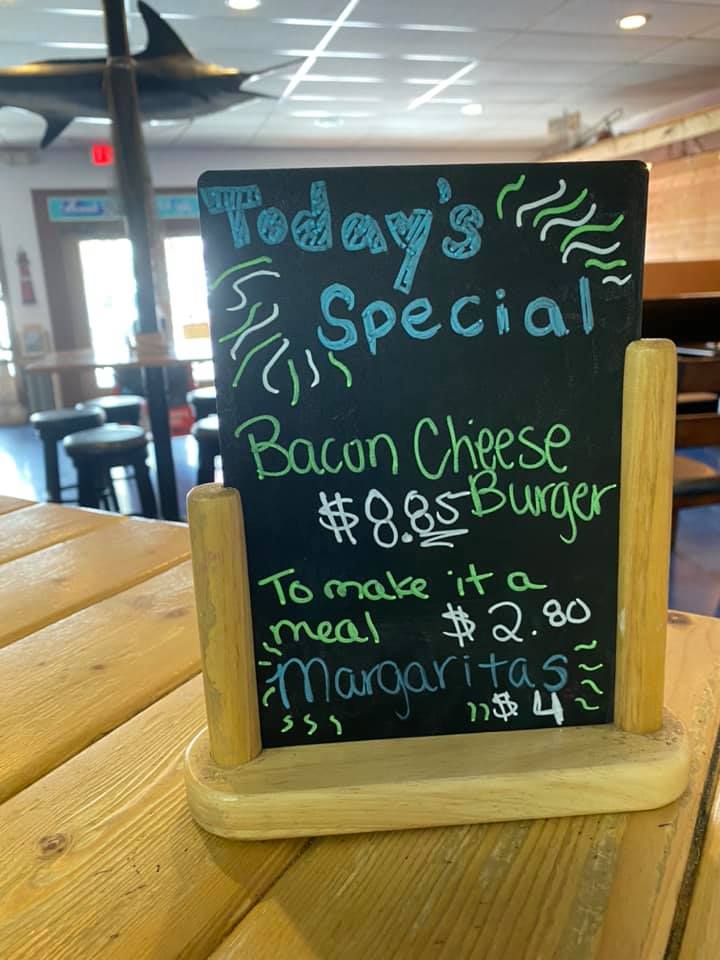 Today's
Special
Bacon Cheese
$8.85 Burger
To make it a
meal $2.80
Margaritas
$4